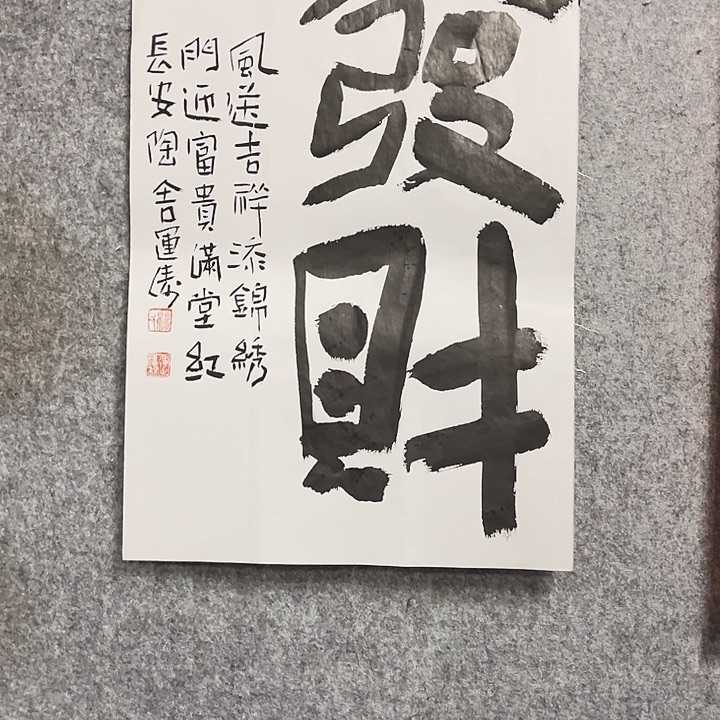 發財
風送吉祥添錦綉
門迎富貴滿堂紅
長安陶舍運濤